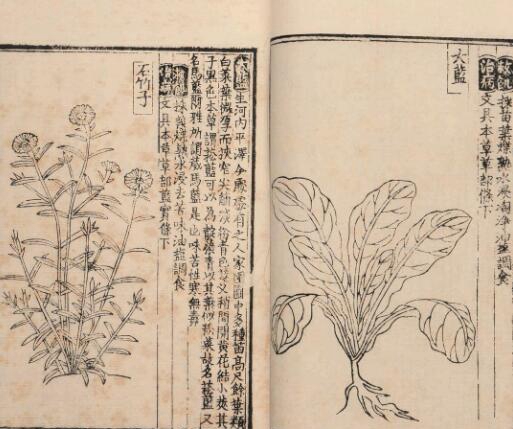 救飢 採苗葉煠熟水浸淘淨油鹽調食
治病 文具本草草部條下
大藍
大藍 生河內平澤今處處有之人家園圃中多種苗高尺餘葉類
白菜葉微厚而狹窄尖 淡粉青色莖叉稍間開黃花結小莢其
子黑色本草謂菘藍可以為靛染青以其葉似菘菜故名菘藍又
名馬藍爾雅所謂葴馬藍是也味苦性寒無毒
救飢 採葉煠熟水浸去苦味油鹽調食
治病 文具本草草部藍實條下
石竹子